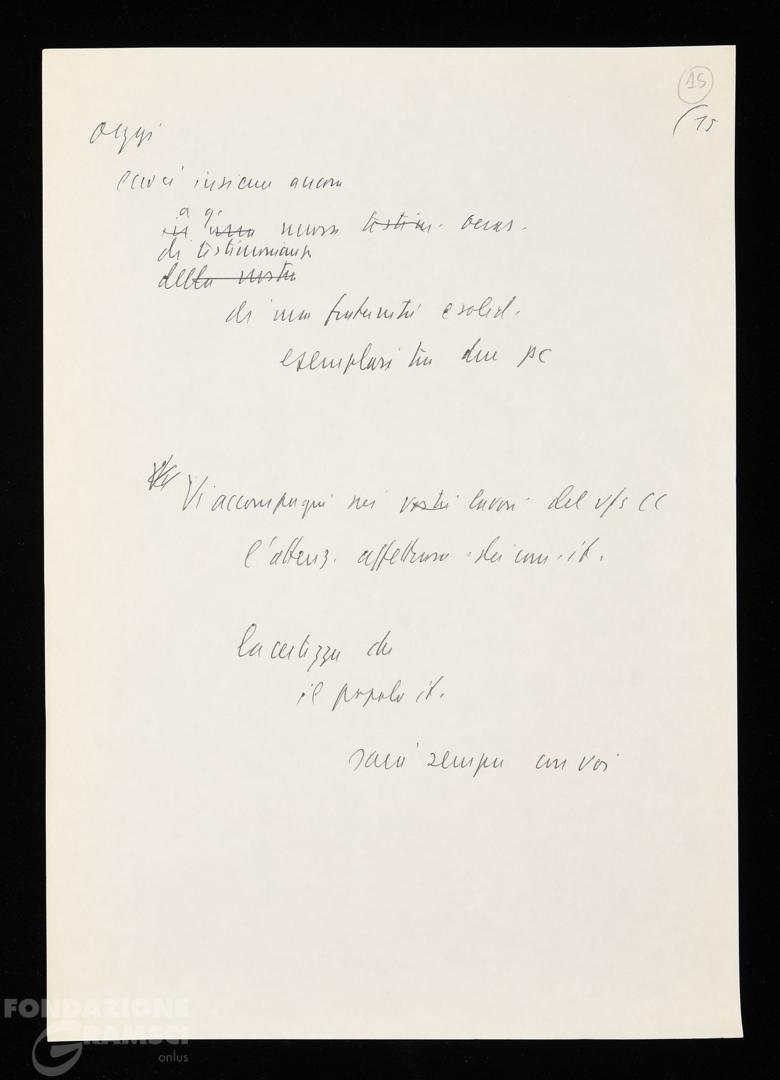 15
(15
oggi
insieme ancora
a q.
in una nuova testim. occas.
di testimonianza
della nostra
di una fraternità e solid.
esemplari tra due pc
Vi accompagni nei vostri lavori del vs CC
l'attenz. affettuosa dei com. it.
la certezza che
il popolo it.
sarà sempre con voi
FONDAZIONE
GRAMSCI
onlus